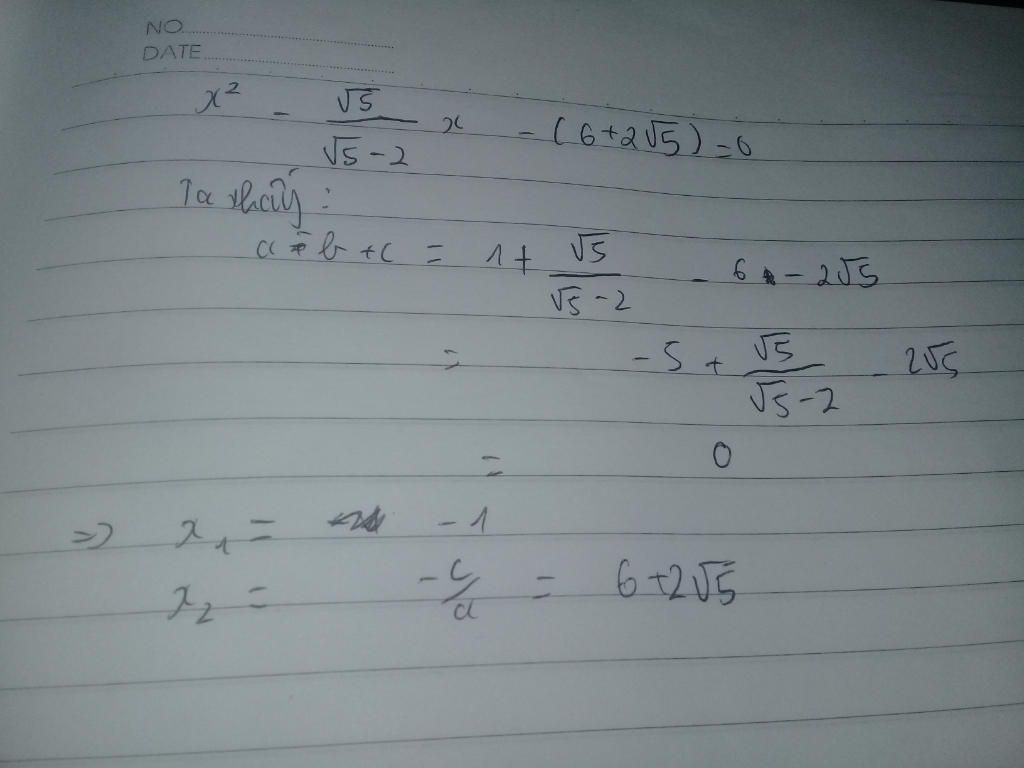 NO
DATE
x² - √5/(√5-2) x - (6+2√5) = 0
Ta thấy :
a - b + c = 1 + √5/(√5-2) - 6 - 2√5
= -5 + √5/(√5-2) - 2√5
= 0
=> x₁ = -1
x₂ = -c/a = 6+2√5